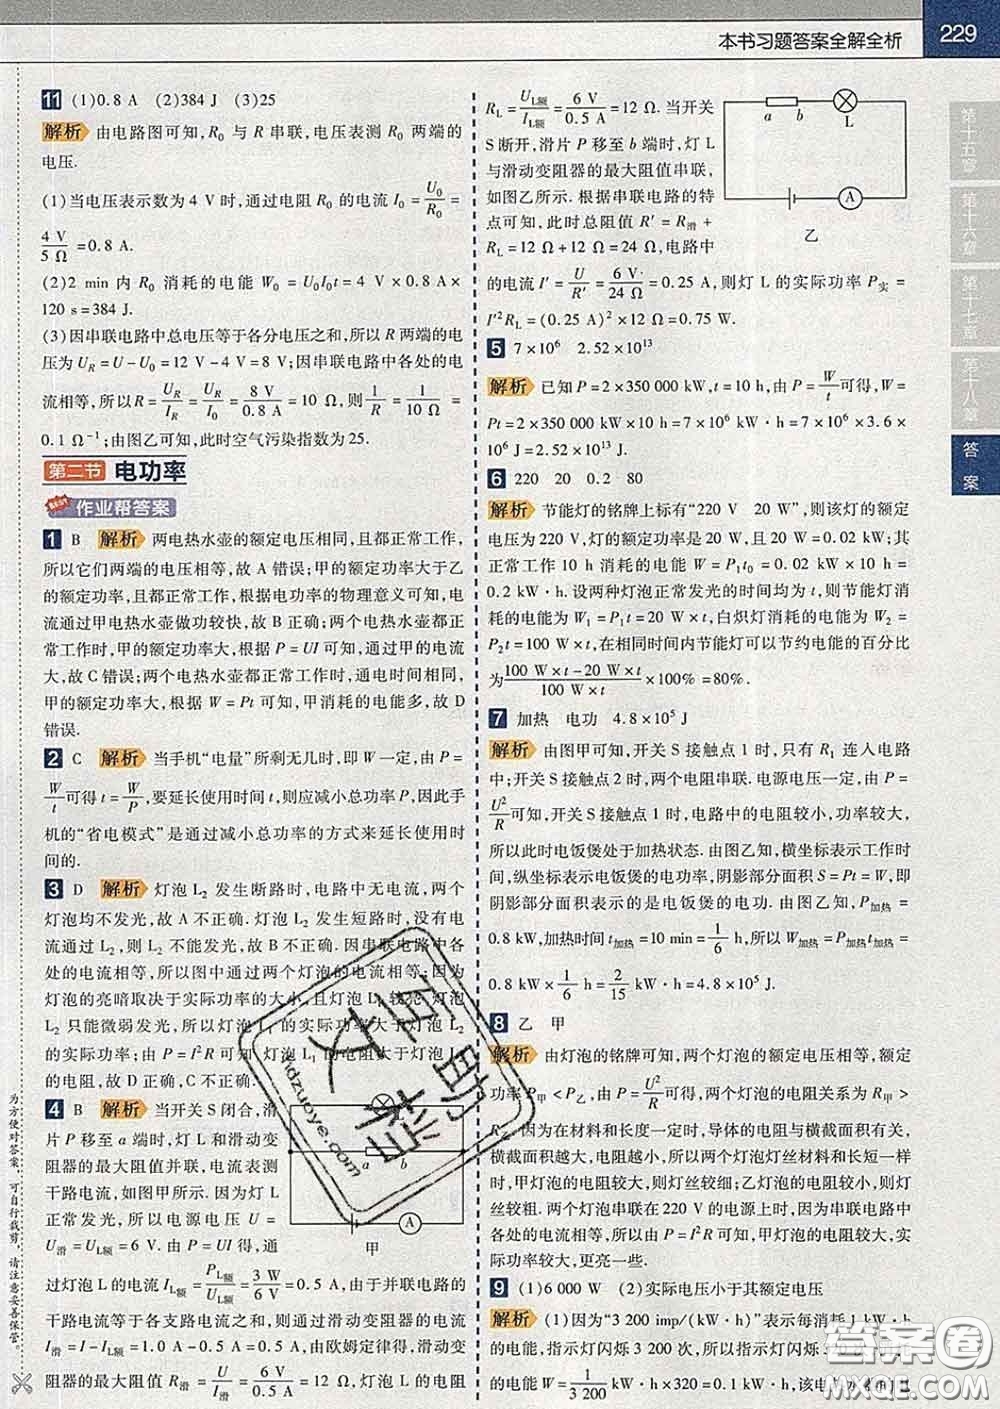 本书习题答案全解全析
229
11 (1)0.8 A (2)384 J (3)25
解析 由电路图可知,R₀ 与 R 串联,电压表测 R₀ 两端的
电压.
(1)当电压表示数为 4 V 时,通过电阻 R₀ 的电流 I₀ = U₀/R₀
= 4 V/5 Ω = 0.8 A.
(2)2 min 内 R₀ 消耗的电能 W₀ = U₀I₀t = 4 V × 0.8 A ×
120 s = 384 J.
(3)因串联电路中总电压等于各分电压之和,所以 R 两端的电
压为 U_R = U − U₀ = 12 V − 4 V = 8 V;因串联电路中各处的电
流相等,所以 R = U_R/I_R = U_R/I₀ = 8 V/0.8 A = 10 Ω,则 1/R = 1/10 Ω =
0.1 Ω⁻¹;由图乙可知,此时空气污染指数为 25.
第二节 电功率
作业帮答案
1 B 解析 两电热水壶的额定电压相同,且都正常工作,
所以它们两端的电压相等,故 A 错误;甲的额定功率大于乙
的额定功率,且都正常工作,根据电功率的物理意义可知,电
流通过甲电热水壶做功较快,故 B 正确;两个电热水壶都正
常工作时,甲的额定功率大,根据 P = UI 可知,通过甲的电流
大,故 C 错误;两个电热水壶都正常工作,通电时间相同,
甲的额定功率大,根据 W = Pt 可知,甲消耗的电能多,故 D
错误.
2 C 解析 当手机“电量”所剩无几时,即 W 一定,由 P =
W/t 可得 t = W/P,要延长使用时间 t,则应减小总功率 P,因此手
机的“省电模式”是通过减小总功率的方式来延长使用时
间的.
3 D 解析 灯泡 L₂ 发生断路时,电路中无电流,两个
灯泡均不发光,故 A 不正确.灯泡 L₂ 发生短路时,没有电
流通过 L₂,则 L₂ 不能发光,故 B 不正确.因串联电路中各
处的电流相等,所以图中通过两个灯泡的电流相等;因为
灯泡的亮暗取决于实际功率的大小,且灯泡 L₁ 较亮,灯泡
L₂ 只能微弱发光,所以灯泡 L₁ 的实际功率大于灯泡 L₂
的实际功率;由 P = I²R 可知,灯泡 L₁ 的电阻大于灯泡 L₂
的电阻,故 D 正确,C 不正确.
4 B 解析 当开关 S 闭合,滑
片 P 移至 a 端时,灯 L 和滑动变
阻器的最大阻值并联,电流表测
干路电流,如图甲所示.因为灯 L
正常发光,所以电源电压 U =
U滑 = U_L额 = 6 V.由 P = UI 得,通
过灯泡 L 的电流 I_L额 = P_L额/U_L额 = 3 W/6 V = 0.5 A,由于并联电路的
干路电流等于各支路电流之和,则通过滑动变阻器的电流
I滑 = I − I_L额 = 1 A − 0.5 A = 0.5 A,由欧姆定律得,滑动变
阻器的最大阻值 R滑 = U/I滑 = 6 V/0.5 A = 12 Ω,灯泡 L 的电阻
a
b
A
甲
R_L = U_L额/I_L额 = 6 V/0.5 A = 12 Ω.当开关
S 断开时,滑片 P 移至 b 端时,灯 L
与滑动变阻器的最大阻值串联,
如图乙所示.根据串联电路的特
点可知,此时总阻值 R′ = R滑 +
R_L = 12 Ω + 12 Ω = 24 Ω,电路中
的电流 I′ = U/R′ = 6 V/24 Ω = 0.25 A;则灯 L 的实际功率 P实 =
I′²R_L = (0.25 A)² × 12 Ω = 0.75 W.
a
b
L
A
乙
5 7 × 10⁶ 2.52 × 10¹³
解析 已知 P = 2 × 350 000 kW,t = 10 h,由 P = W/t 可得,W =
Pt = 2 × 350 000 kW × 10 h = 7 × 10⁶ kW · h = 7 × 10⁶ × 3.6 ×
10⁶ J = 2.52 × 10¹³ J.
6 220 20 0.2 80
解析 节能灯的铭牌上标有“220 V 20 W”,则该灯的额定
电压为 220 V,灯的额定功率是 20 W,且 20 W = 0.02 kW;其
正常工作 10 h 消耗的电能 W = P₁t₀ = 0.02 kW × 10 h =
0.2 kW · h.设两种灯泡正常发光的时间均为 t,则节能灯消
耗的电能为 W₁ = P₁t = 20 W × t,白炽灯消耗的电能为 W₂ =
P₂t = 100 W × t,在相同时间内节能灯可以节约电能的百分比
为 (100 W × t − 20 W × t)/(100 W × t) × 100% = 80%.
7 加热 电功 4.8 × 10⁵ J
解析 由图甲可知,开关 S 接触点 1 时,只有 R₁ 连入电路
中;开关 S 接触点 2 时,两个电阻串联.电源电压一定,由 P
= U²/R 可知,开关 S 接触点 1 时,电路中的电阻较小,功率较大,
所以此时电饭煲处于加热状态.由图乙知,横坐标表示工作时
间,纵坐标表示电饭煲的电功率,阴影部分面积 S = Pt = W,即
阴影部分面积表示的是电饭煲的电功.由图乙知,P加热 =
0.8 kW,加热时间 t加热 = 10 min = 1/6 h,所以 W加热 = P加热t加热 =
0.8 kW × 1/6 h = 2/15 kW · h = 4.8 × 10⁵ J.
8 乙 甲
解析 由灯泡的铭牌可知,两个灯泡的额定电压相等,额定
功率 P甲 < P乙,由 P = U²/R 可得,两个灯泡的电阻关系为 R甲 >
R乙.因为在材料和长度一定时,导体的电阻与横截面积有关,
横截面积越大,电阻越小,所以两灯泡灯丝材料、长度一样
时,甲灯泡灯丝较细;乙灯泡的电阻较小,所以乙灯泡的灯
丝较粗.两个灯泡串联在 220 V 的电源上时,因为串联电路
各处的电流相等,所以由 P = I²R 可知,甲灯泡的电阻较大,
实际功率较大,更亮一些.
9 (1)6 000 W (2)实际电压小于其额定电压
解析 (1)因为“3 200 imp/(kW · h)”表示每消耗 1 kW · h
的电能,指示灯闪烁 3 200 次,所以指示灯闪烁
的电能 W = 1/3 200 kW · h × 320 = 0.1 kW · h,该电
第十五章
第十六章
第十七章
第十八章
答案
为方便对答案,可自行裁剪,请注意妥善保管。
作业帮手
zuoye.com
答案圈
MXQE.COM